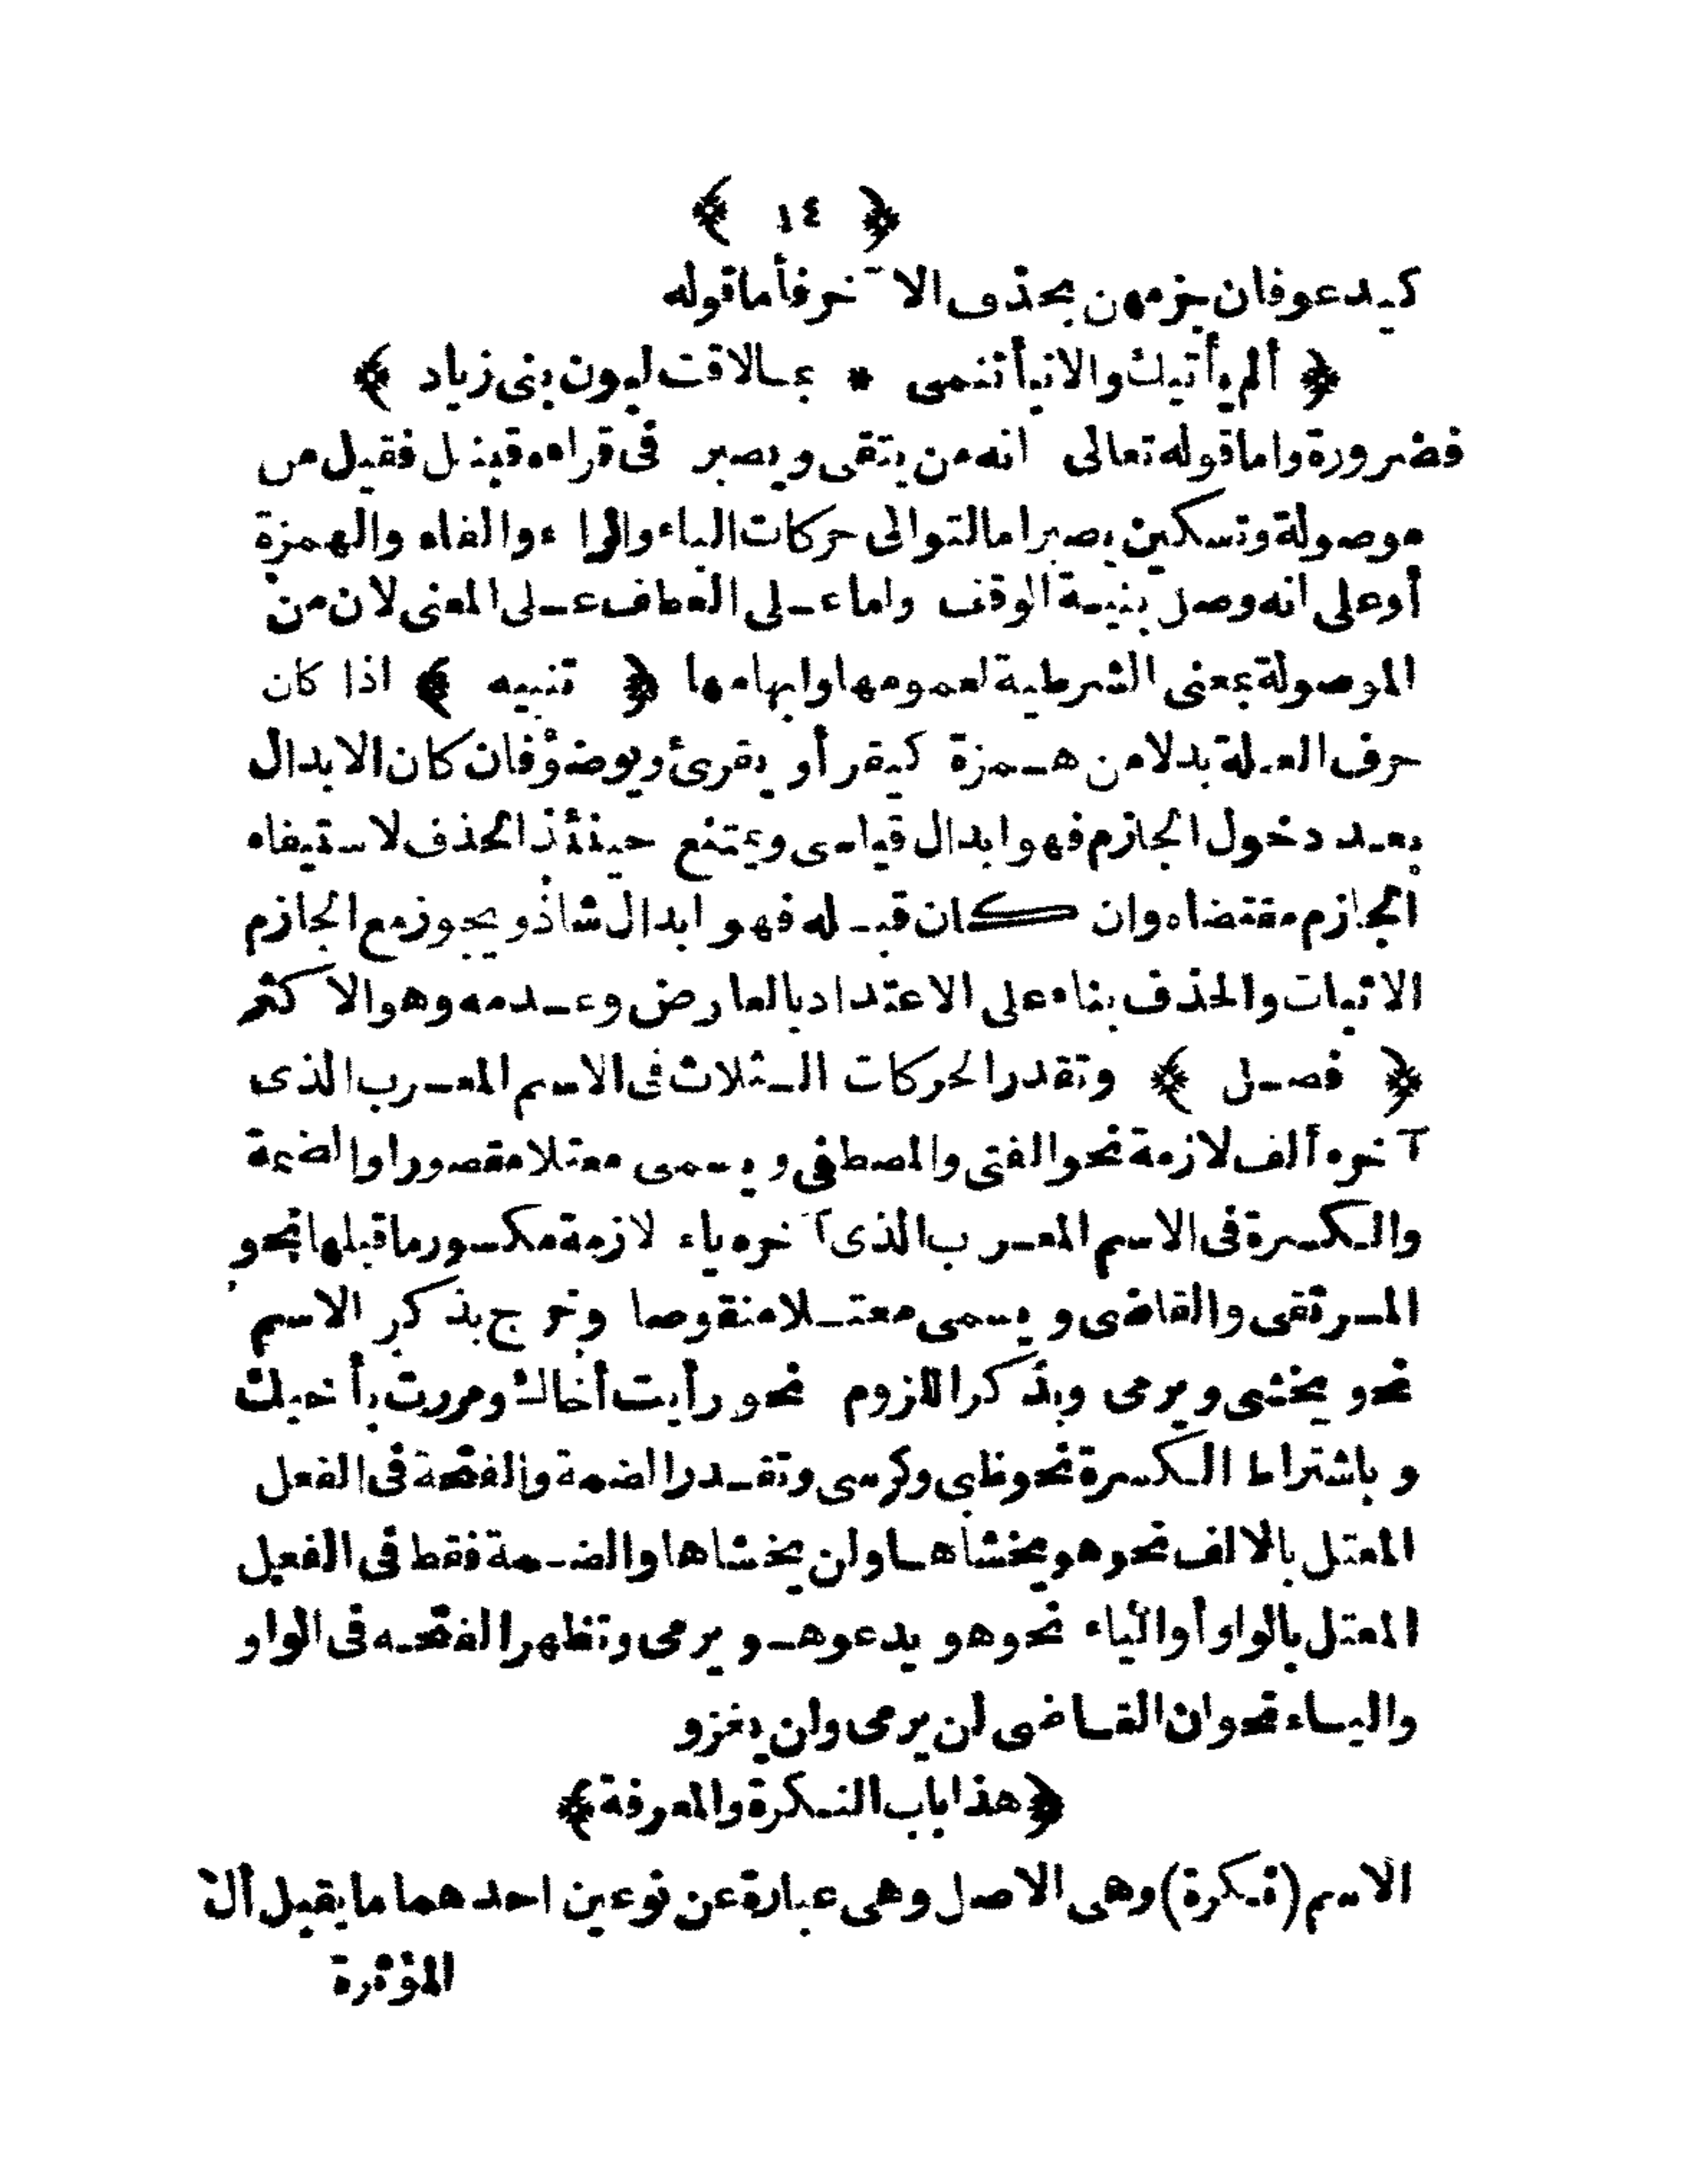 ﴿ ١٤ ﴾
كيدعو فان جزمهن بحذف الآخر فأما قوله
﴿ ألم يأتيك والانباء تنمى * بما لاقت لبون بنى زياد ﴾
فضرورة واما قوله تعالى انه من يتقى ويصبر فى قراءه قنبل فقيل من
موصولة وتسكين يصبر اما لتوالى حركات الباء والراء والفاء والهمزة
أو على انه وصل بنية الوقف واما على العطف على المعنى لان من
الموصولة بمعنى الشرطية لعمومها وابهامها ﴿ تنبيه ﴾ اذا كان
حرف العلة بدلا من همزة كيقرأ ويقرئ ويوضؤ فان كان الابدال
بعد دخول الجازم فهو ابدال قياسى ويمتنع حينئذ الحذف لاستيفاء
الجازم مقتضاه وان كان قبله فهو ابدال شاذ ويجوز مع الجازم
الاثبات والحذف بناء على الاعتداد بالعارض وعدمه وهو الاكثر
﴿ فصل ﴾ وتقدر الحركات الثلاث فى الاسم المعرب الذى
آخره ألف لازمة نحو الفتى والمصطفى ويسمى معتلا مقصورا والضمة
والكسرة فى الاسم المعرب الذى آخره ياء لازمة مكسور ما قبلها نحو
المرتقى والقاضى ويسمى معتلا منقوصا وخرج بذكر الاسم
نحو يخشى ويرمى وبذكر اللزوم نحو رأيت أخاك ومررت بأخيك
وباشتراط الكسرة نحو ظبى وكرسى وتقدر الضمة والفتحة فى الفعل
المعتل بالالف نحو هو يخشاها ولن يخشاها والضمة فقط فى الفعل
المعتل بالواو أو الياء نحو هو يدعو هو يرمى وتظهر الفتحه فى الواو
والياء نحو ان القاضى لن يرمى ولن يغزو
﴿هذا باب النكرة والمعرفة﴾
الاسم (نكرة) وهى الاصل وهى عبارة عن نوعين احدهما ما يقبل أل
المؤثرة